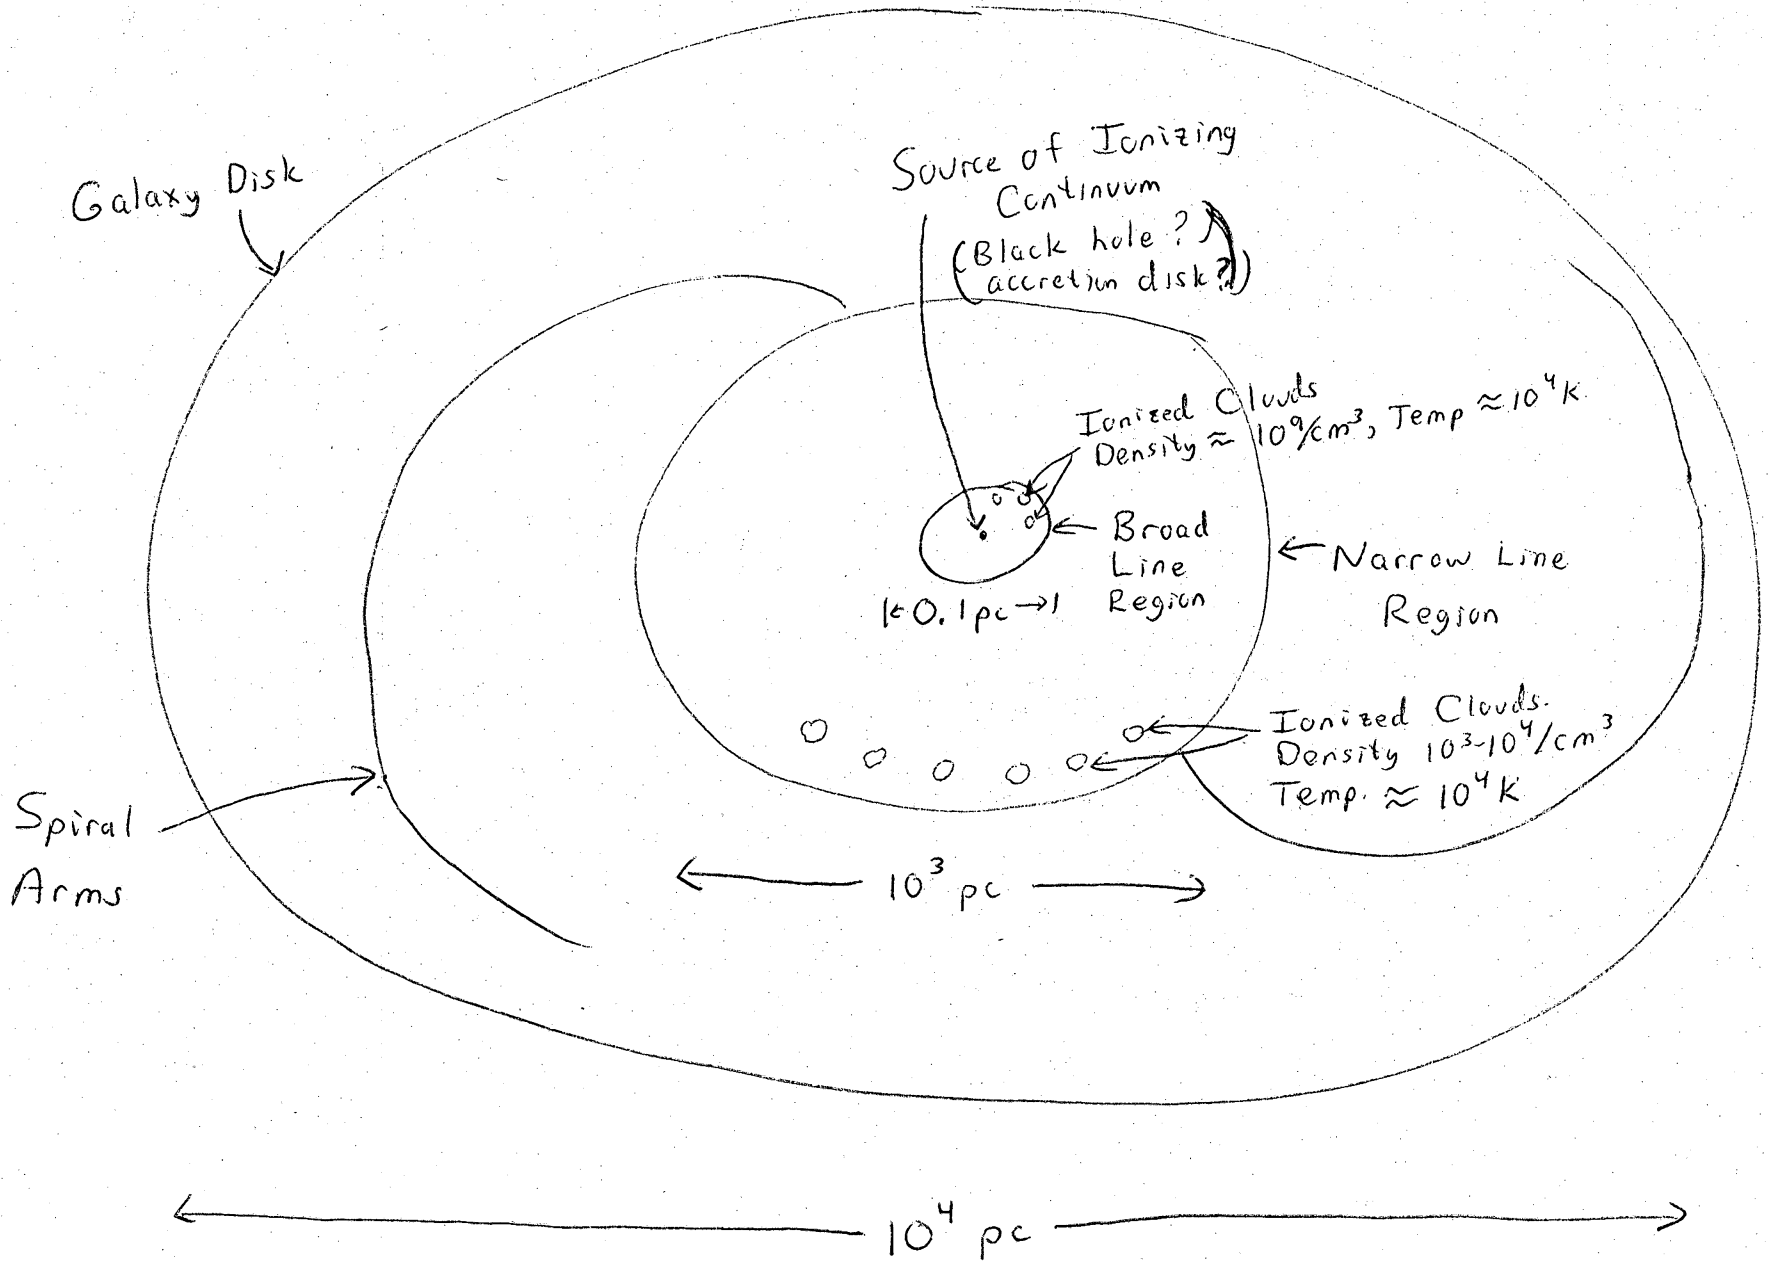 Galaxy Disk
Source of Ionizing
Continuum
(Black hole ?
accretion disk?)
Ionized Clouds
Density ≈ 10⁹/cm³, Temp ≈ 10⁴ K
Broad
Line
Region
0.1pc
Narrow Line
Region
Ionized Clouds.
Density 10³-10⁴/cm³
Temp. ≈ 10⁴ K
Spiral
Arms
10³ pc
10⁴ pc